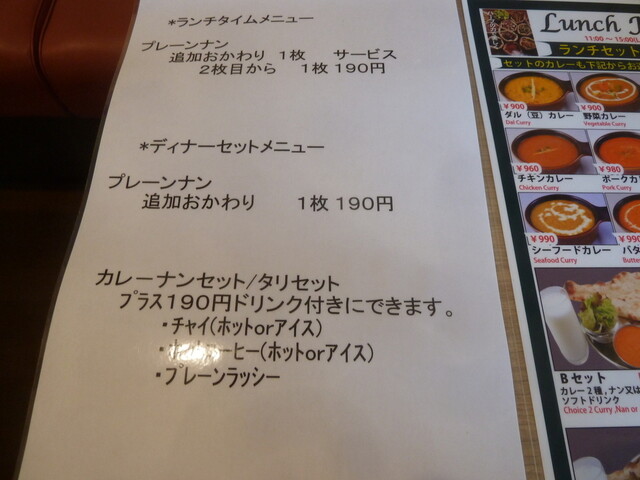 *ランチタイムメニュー
プレーンナン
追加おかわり 1枚 サービス
2枚目から 1枚 190円
*ディナーセットメニュー
プレーンナン
追加おかわり 1枚 190円
カレーナンセット/タリセット
プラス190円ドリンク付きにできます。
・チャイ(ホットorアイス)
ーヒー(ホットorアイス)
・プレーンラッシー
Lunch
11:00～15:00(L.
ランチセット
セットのカレーも下記からお
¥900 ¥900
ダル(豆)カレー 野菜カレー
Dal Curry Vegetable Curry
¥960 ¥980
チキンカレー ポークカ
Chicken Curry Pork Curry
¥990 ¥99
シーフードカレー バタ
Seafood Curry Butte
Bセット
カレー2種,ナン又は
ソフトドリンク
Choice 2 Curry ,Nan or